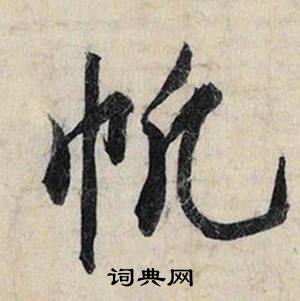 帆
词典网